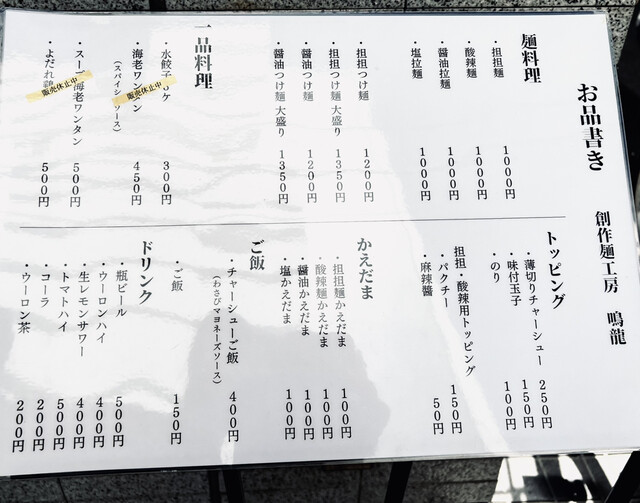 お品書き
創作麺工房 鳴龍
麺料理
・担担麺 1000円
・酸辣麺 1000円
・醤油拉麺 1000円
・塩拉麺 1000円
・担担つけ麺 1200円
・担担つけ麺 大盛り 1350円
・醤油つけ麺 1200円
・醤油つけ麺 大盛り 1350円
一品料理
・水餃子 ヶ 300円
・海老ワンタン 450円
(スパイシーソース)
販売休止中
・スープ海老ワンタン 500円
・よだれ鶏 500円
販売休止中
トッピング
・薄切りチャーシュー 250円
・味付玉子 150円
・のり 100円
担担・酸辣用トッピング
・パクチー 150円
・麻辣醤 50円
かえだま
・担担麺かえだま 100円
・酸辣麺かえだま 100円
・醤油かえだま 100円
・塩かえだま 100円
ご飯
・チャーシューご飯 400円
(わさびマヨネーズソース)
・ご飯 150円
ドリンク
・瓶ビール 500円
・ウーロンハイ 400円
・生レモンサワー 400円
・トマトハイ 500円
・コーラ 200円
・ウーロン茶 200円